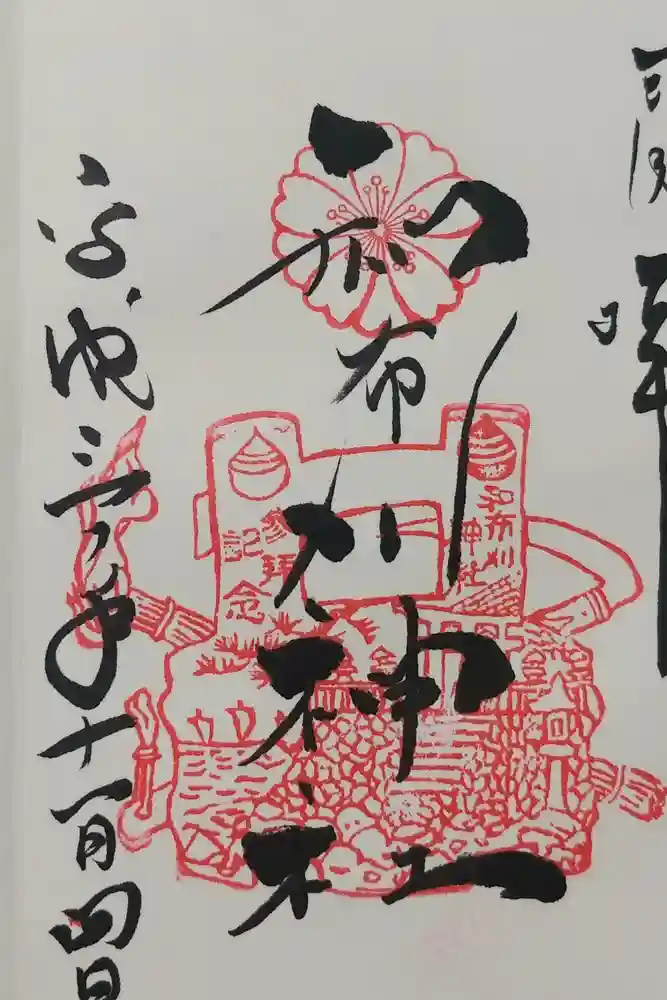 和布刈神社
令和三年十一月四日
和布刈神社
参拝記念